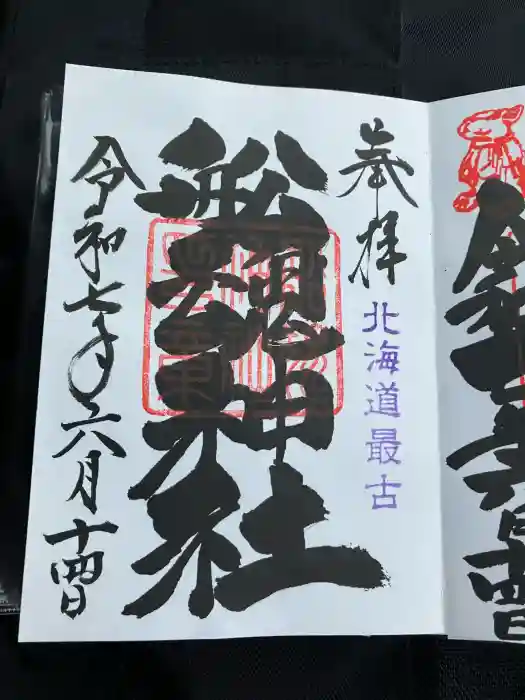 奉拝
北海道最古
船魂神社
令和七年六月十四日